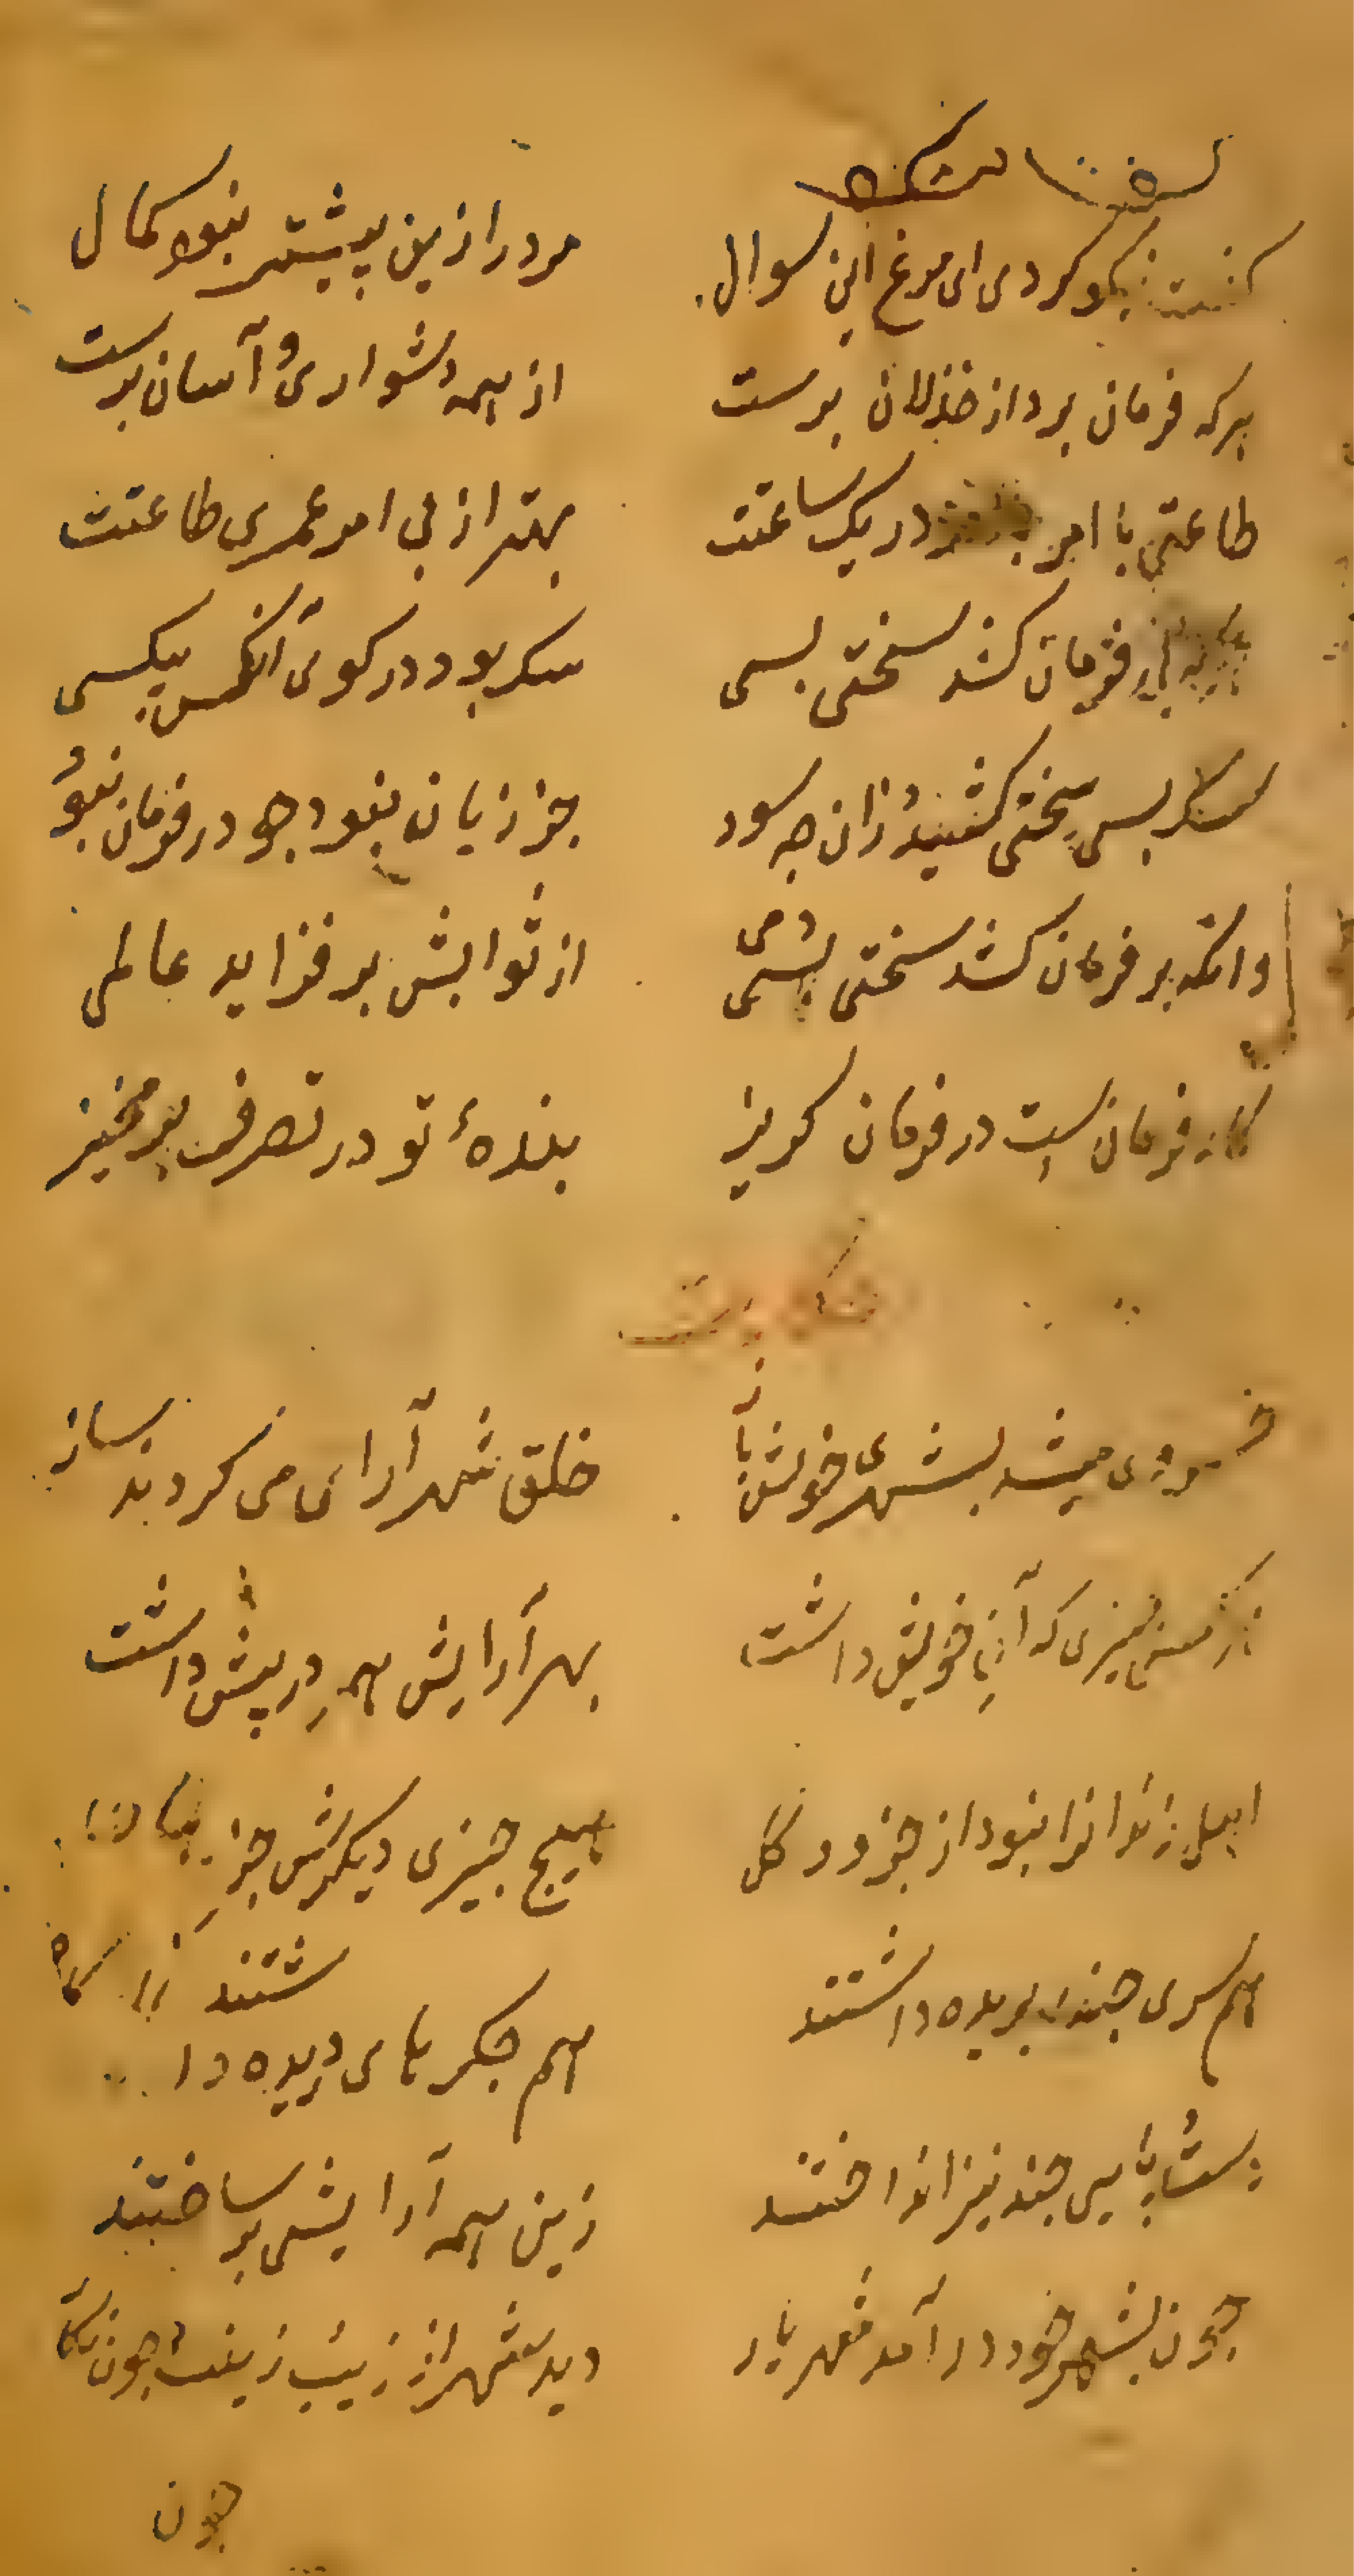 گفت نیکو کردی ای مرغ این سوال مرد را زین بیشتر نبود کمال
هرکه فرمان برد از خذلان برست از همه دشواری و آسان برست
طاعتی با امر در یک ساعتت بهتر از بی امر عمری طاعتت
فرمان کشد سختی بسی سک بود در کوی آنکس نی کسی
سک بسی سختی کشید و زان جه سود جز زیان نبود جو در فرمان نبود
وانکه بر فرمان کشد سختی دمی از ثوابش بر فزاید عالمی
کار فرمان است در فرمان کریز بندهٔ تو در تصرف بر مخیز
حکایت
خسروی میشد بشهری خویش باز خلق شهر آرای می کردند ساز
هر کسی جیزی که آنِ خویش داشت بهر آرایش همه در پیش داشت
اهل زندانرا نبود از جزو و کل هیج جیزی دیکرش جز
هم سری جند بریده داشتند هم جکر های دریده داشتند
دست و پایی جند نیز انداختند زین همه آرایشی بر ساختند
جون بشهر خود در آمد شهریار دید شهر از زیب و زینت جون نکار
جون